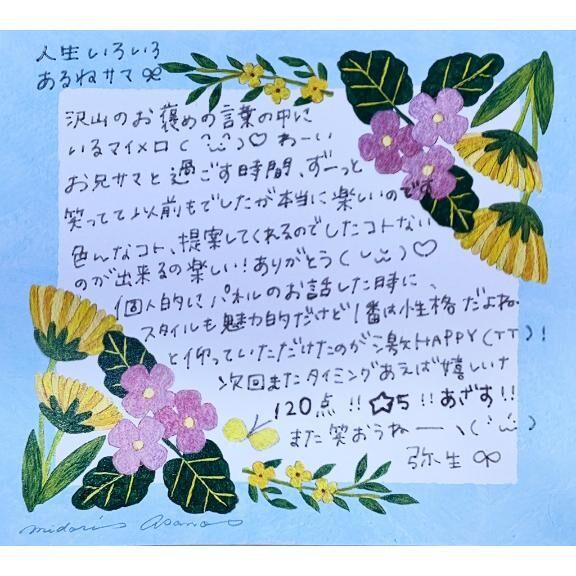 人生いろいろ
あるねサマ
沢山のお褒めの言葉の中に
いるマイメロ( ^ω^ )♡ わーい
お兄サマと過ごす時間、ずーっと
笑ってて以前もでしたが本当に楽しいのです
色んなコト、提案してくれるのでしたコトない
のが出来るの楽しい!ありがとう(◡̈)♡
個人的にパネルのお話した時に、
スタイルも魅力的だけど1番は性格だよね。
と仰っていただけたのが激HAPPY(TT)!
次回またタイミングあえば嬉しいナ
120点!!☆5!!あざす!!
また笑おうねーー、(◡̈)
弥生
midori asano